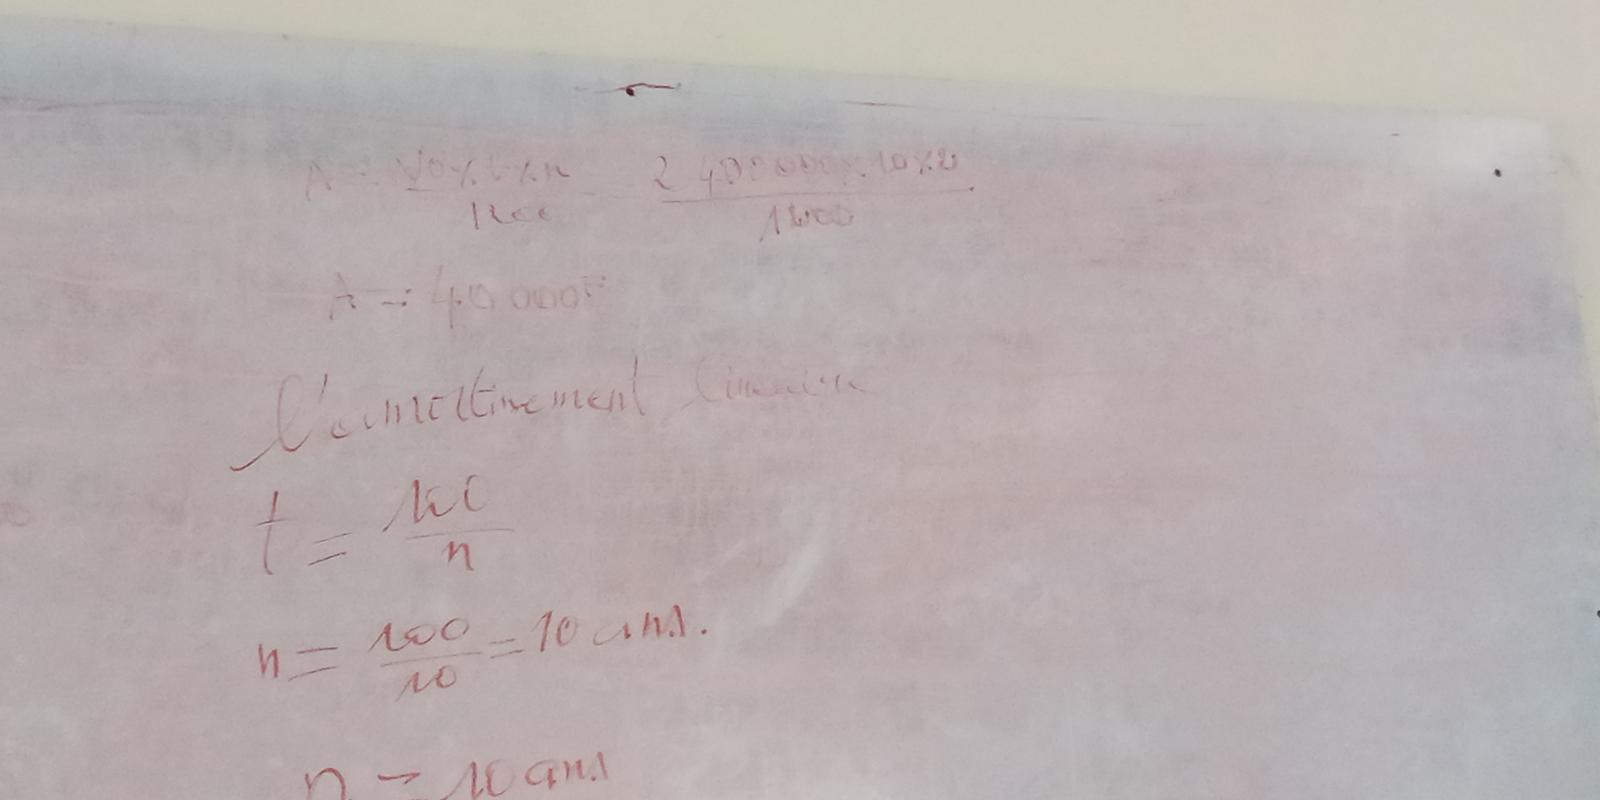 A = V0 x t x n / 1200 = 2 400 000 x 10 x 2 / 1200
A = 40 000F
l'amortissement linéaire
t = 100 / n
n = 100 / 10 = 10 ans.
n = 10 ans